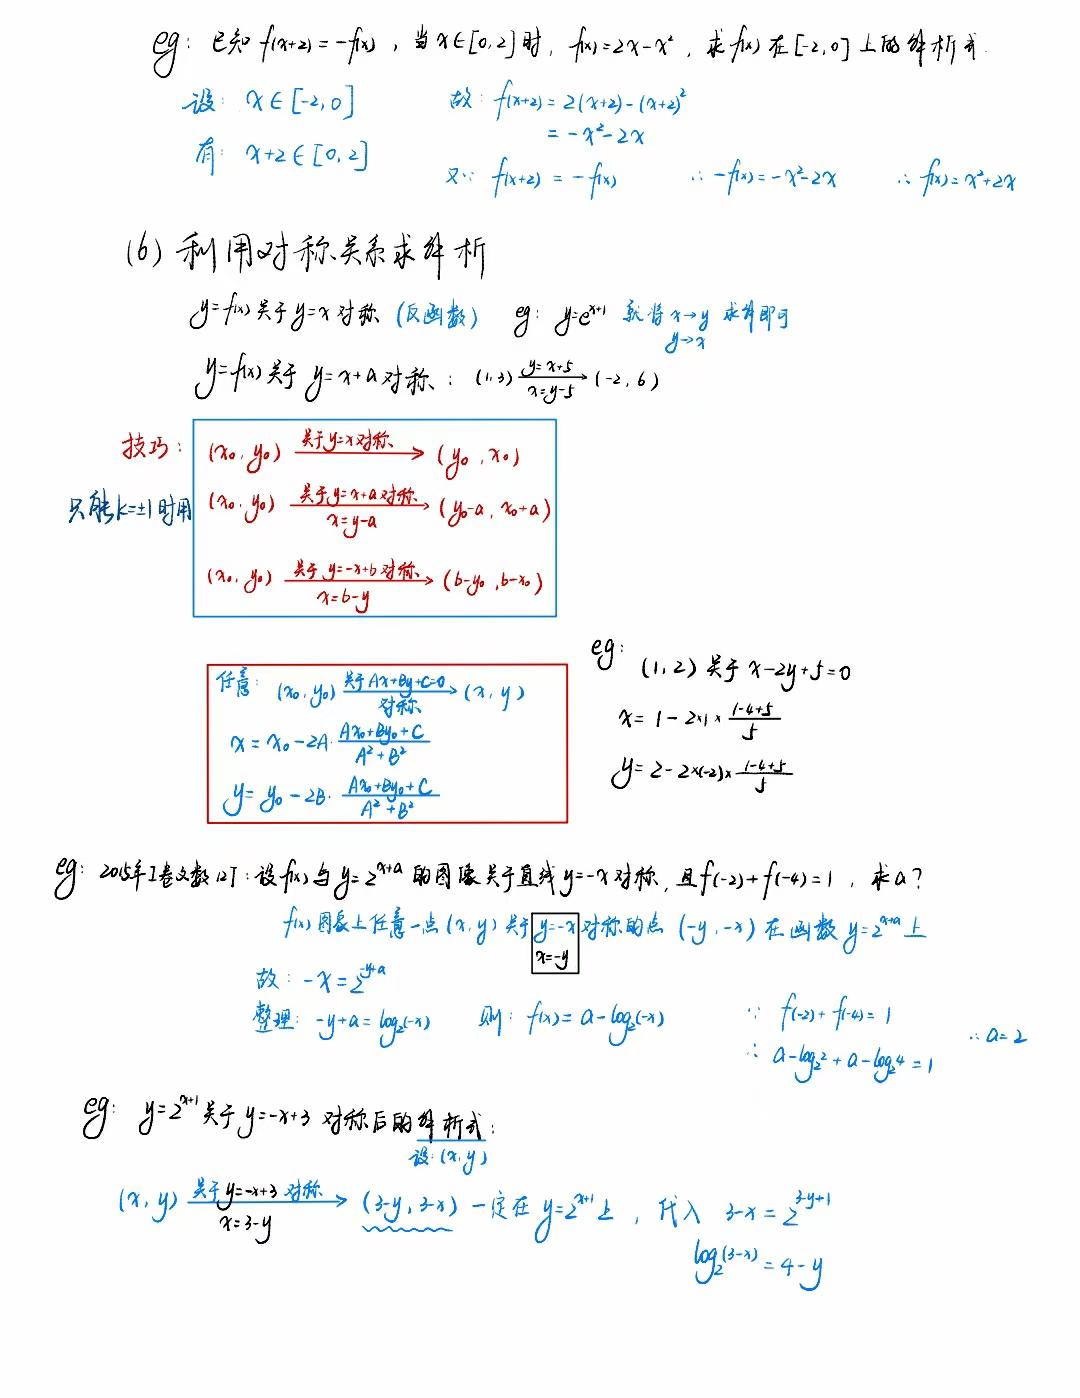 eg: 已知 f(x+2)=-f(x), 当 x∈[0,2]时, f(x)=2x-x², 求f(x)在[-2,0]上的解析式.
设: x∈[-2,0]    故: f(x+2)=2(x+2)-(x+2)²
=-x²-2x
有: x+2∈[0,2]
又∵ f(x+2)=-f(x)    ∴-f(x)=-x²-2x    ∴f(x)=x²+2x
(6) 利用对称关系求解析
y=f(x)关于y=x对称 (反函数)    eg: y=e^{x+1} 就将 x→y 求解即可
y→x
y=f(x)关于 y=x+a对称: (1,3) \xrightarrow[x=y-5]{y=x+5} (-2,6)
技巧: (x₀,y₀) \xrightarrow{关于y=x对称} (y₀,x₀)
只能k=±1时用 (x₀,y₀) \xrightarrow[x=y-a]{关于y=x+a对称} (y₀-a, x₀+a)
(x₀,y₀) \xrightarrow[x=b-y]{关于y=-x+b对称} (b-y₀,b-x₀)
任意: (x₀,y₀) \xrightarrow[对称]{关于Ax+By+C=0} (x,y)
x=x₀-2A·\frac{Ax₀+By₀+C}{A²+B²}
y=y₀-2B·\frac{Ax₀+By₀+C}{A²+B²}
eg: (1,2)关于 x-2y+5=0
x=1-2×1×\frac{1-4+5}{5}
y=2-2×(-2)×\frac{1-4+5}{5}
eg: 2015年I卷文数12T: 设f(x)与y=2^{x+a}的图像关于直线y=-x对称, 且f(-2)+f(-4)=1, 求a?
f(x)图象上任意一点(x,y)关于y=-x对称的点(-y,-x)在函数y=2^{x+a}上
x=-y
故: -x=2^{-y+a}
整理: -y+a=log₂(-x)    则: f(x)=a-log₂(-x)    ∵ f(-2)+f(-4)=1
∴ a-log₂2+a-log₂4=1    ∴a=2
eg: y=2^{x+1}关于y=-x+3 对称后的解析式:
设:(x,y)
(x,y) \xrightarrow[x=3-y]{关于y=-x+3对称} (3-y,3-x) 一定在y=2^{x+1}上, 代入 3-x=2^{3-y+1}
log₂(3-x)=4-y